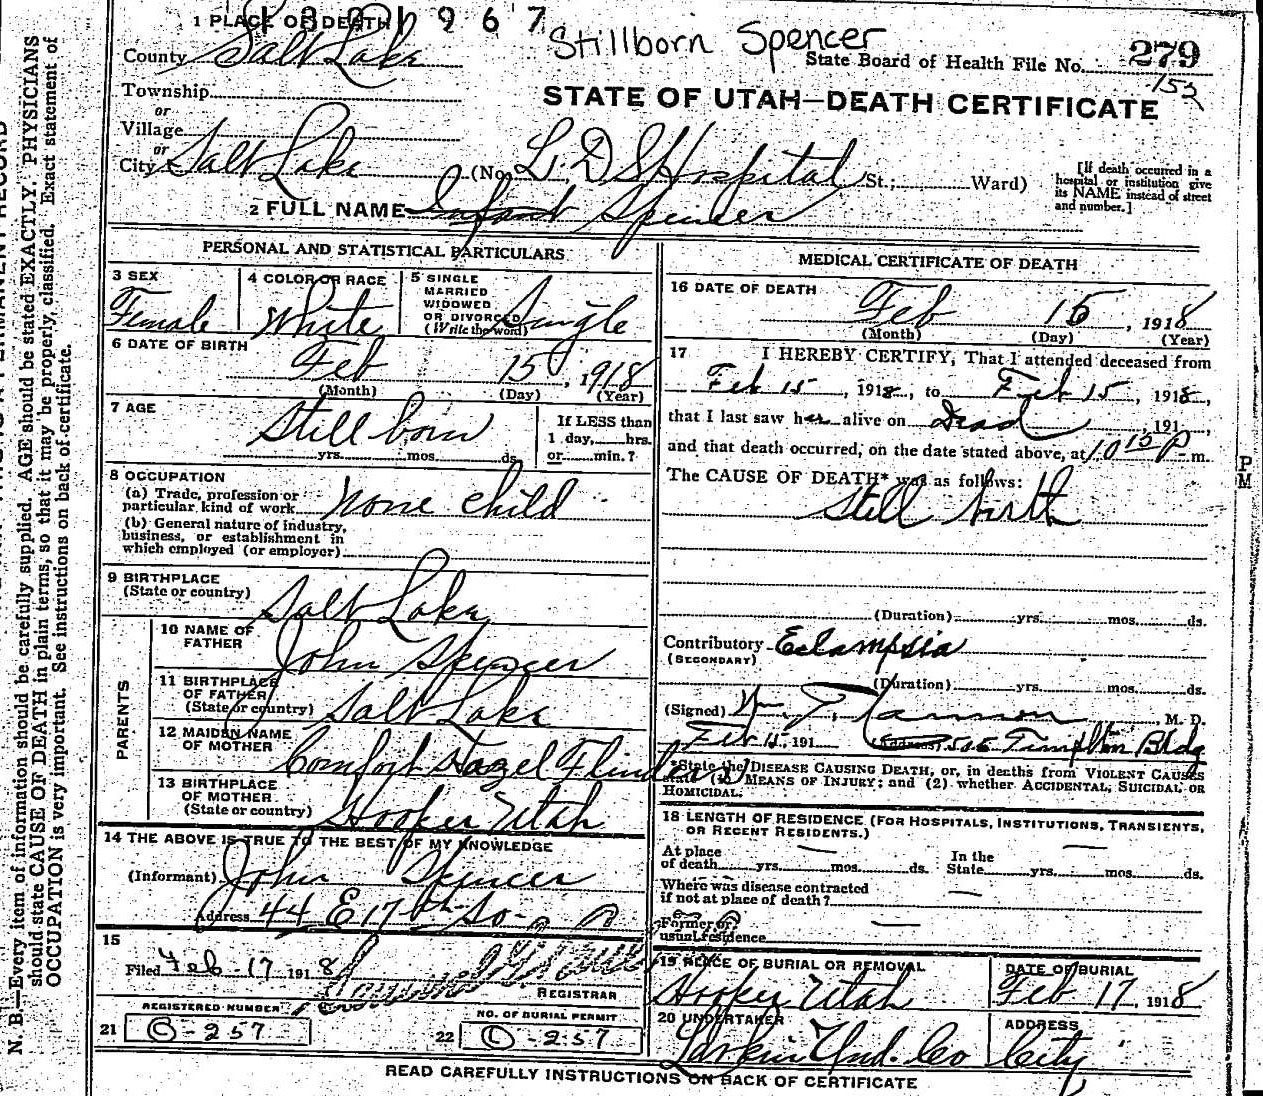 1 PLACE OF DEATH
967
Stillborn Spencer
County Salt Lake
State Board of Health File No. 279
153
Township
STATE OF UTAH—DEATH CERTIFICATE
or
Village
or
City Salt Lake (No. L. D. S Hospital St.; Ward)
[If death occurred in a
hospital or institution give
its NAME instead of street
and number.]
2 FULL NAME Infant Spencer
PERSONAL AND STATISTICAL PARTICULARS
3 SEX
Female
4 COLOR OR RACE
White
5 SINGLE
MARRIED
WIDOWED
OR DIVORCED
(Write the word)
Single
6 DATE OF BIRTH
Feb 15, 1918
(Month) (Day) (Year)
7 AGE
Still born
yrs. mos. ds.
If LESS than
1 day, hrs.
or min.?
8 OCCUPATION
(a) Trade, profession or
particular kind of work None child
(b) General nature of industry,
business, or establishment in
which employed (or employer)
9 BIRTHPLACE
(State or country) Salt Lake
PARENTS
10 NAME OF
FATHER John Spencer
11 BIRTHPLACE
OF FATHER
(State or country) Salt Lake
12 MAIDEN NAME
OF MOTHER Comfort Hazel Flinders
13 BIRTHPLACE
OF MOTHER
(State or country) Hooper Utah
14 THE ABOVE IS TRUE TO THE BEST OF MY KNOWLEDGE
(Informant) John Spencer
Address 44 E 17th So
15
Filed Feb-17 1918
REGISTRAR
REGISTERED NUMBER
21 B-257
NO. OF BURIAL PERMIT
22 -257
MEDICAL CERTIFICATE OF DEATH
16 DATE OF DEATH
Feb 15, 1918
(Month) (Day) (Year)
17 I HEREBY CERTIFY, That I attended deceased from
Feb 15, 1918, to Feb 15, 1918,
that I last saw her alive on Dead, 191,
and that death occurred, on the date stated above, at 10 15 P m.
PM
The CAUSE OF DEATH* was as follows:
Still birth
(Duration) yrs. mos. ds.
Contributory Eclampsia
(SECONDARY)
(Duration) yrs. mos. ds.
(Signed) Wm. T. Cannon, M. D.
Feb 15, 191 (Address) 505 Templton Bldg
*State the DISEASE CAUSING DEATH, or, in deaths from VIOLENT CAUSES
state (1) MEANS OF INJURY; and (2) whether ACCIDENTAL, SUICIDAL OR
HOMICIDAL.
18 LENGTH OF RESIDENCE (FOR HOSPITALS, INSTITUTIONS, TRANSIENTS,
OR RECENT RESIDENTS.)
At place
of death — yrs. mos. ds.
In the
State — yrs. mos. ds.
Where was disease contracted
if not at place of death? —
Former or
usual residence —
19 PLACE OF BURIAL OR REMOVAL
Hooper Utah
DATE OF BURIAL
Feb 17, 1918
20 UNDERTAKER
Larkin Und. Co
ADDRESS
City
READ CAREFULLY INSTRUCTIONS ON BACK OF CERTIFICATE
N. B.—Every item of information should be carefully supplied. AGE should be stated EXACTLY. PHYSICIANS
should state CAUSE OF DEATH in plain terms, so that it may be properly classified. Exact statement of
OCCUPATION is very important. See instructions on back of certificate.